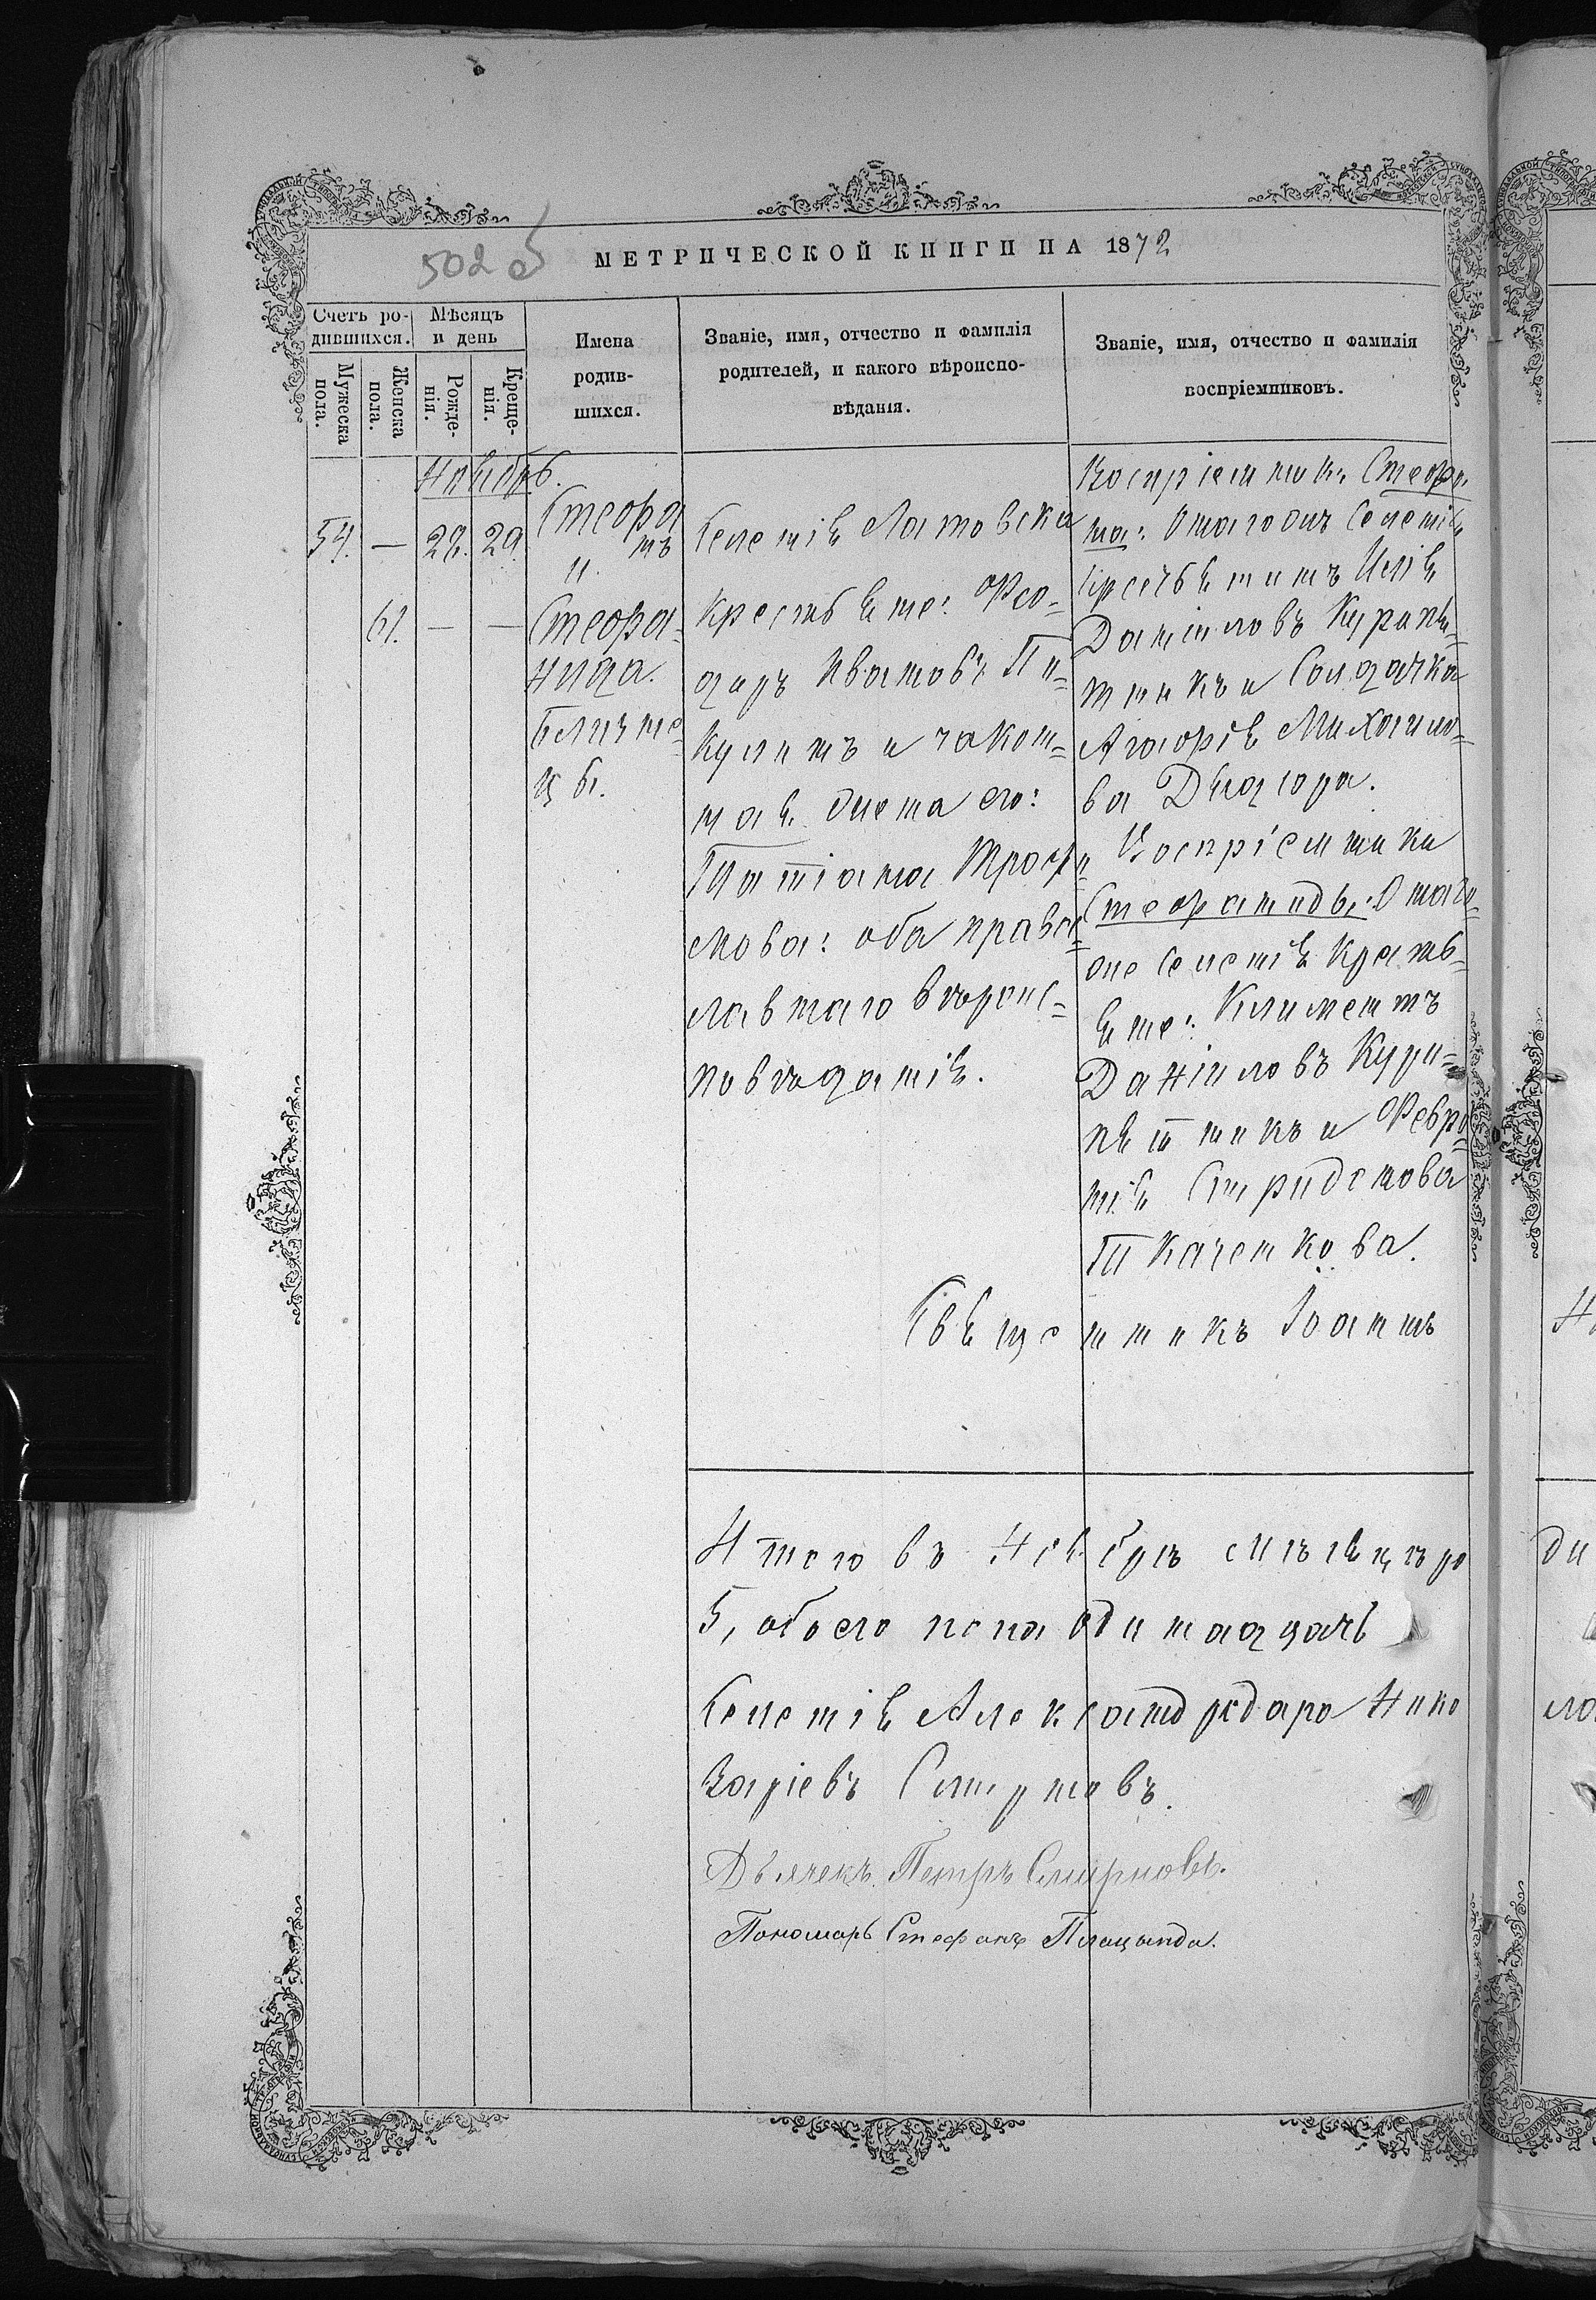 502 об
МЕТРИЧЕСКОЙ КНИГИ НА 1872
Счетъ ро-
дившихся.
Мужеска
пола.
Женска
пола.
Мѣсяцъ
и день
Рожде-
нія.
Креще-
нія.
Имена
родив-
шихся.
Званіе, имя, отчество и фамилія
родителей, и какого вѣроиспо-
вѣданія.
Званіе, имя, отчество и фамилія
воспріемниковъ.
Ноябрь.
54. — 28. 29.
Стефа
нъ
и
61. — —
Стефа-
нида.
Близне-
цы.
Селенія Латовска
крестьяне: Фео-
доръ Ивановъ Пи-
кулинъ и закон-
ная жена его:
Татіана Трофи-
мова: оба право-
славнаго вѣроис-
повѣданія.
Воспріемники Стефа-
на: Онагожъ Селенія
Крестьянинъ Илія
Даніиловъ Курапят-
никъ и Солдатка
Агафія Михаило-
ва Дядюра.
Воспріемники
Стефаниды: Онаго
же Селенія Кресть-
яне: Климентъ
Даніиловъ Кура-
пятникъ и Февро-
нія Спиридонова
Ткаченкова.
Священникъ Іоаннъ
Итого въ Ноябрѣ мѣсяцѣ ро
5, обоего пола одинадцать
Селенія Александродаро Нико
Захріевъ Смирновъ.
Дьячекъ Петръ Смирновъ.
Пономарь Стефанъ Плацында.